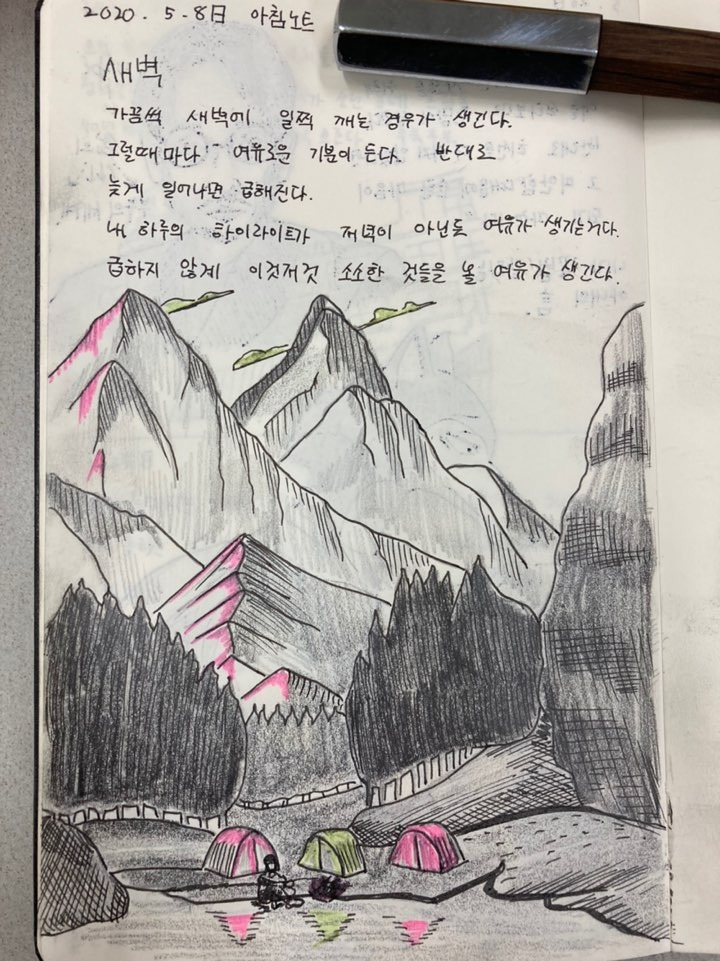 2020. 5. 8日 아침노트
새벽
가끔씩 새벽에 일찍 깨는 경우가 생긴다.
그럴때마다 여유로운 기분이 든다. 반대로
늦게 일어나면 급해진다.
내 하루의 하이라이트가 저녁이 아닌듯 여유가 생기는거다.
급하지 않게 이것저것 소소한 것들을 볼 여유가 생긴다.